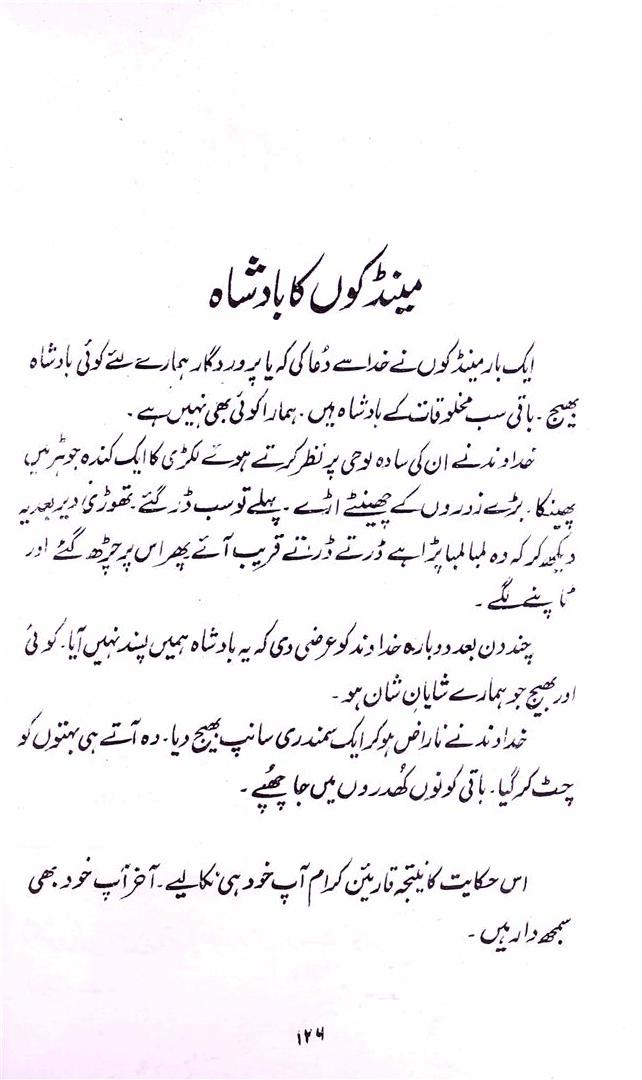 مینڈکوں کا بادشاہ
ایک بار مینڈکوں نے خدا سے دُعا کی کہ یا پروردگار ہمارے لئے کوئی بادشاہ
بھیج۔ باقی سب مخلوقات کے بادشاہ ہیں۔ ہمارا کوئی بھی نہیں ہے۔
خداوند نے ان کی سادہ لوحی پر نظر کرتے ہوئے لکڑی کا ایک کندہ جوہڑ میں
پھینکا۔ بڑے زوروں کے چھینٹے اڑے۔ پہلے تو سب ڈر گئے۔ تھوڑی دیر بعد یہ
دیکھ کر کہ وہ لمبا لمبا پڑا ہے ڈرتے ڈرتے قریب آئے پھر اس پر چڑھ گئے اور
ٹاپنے لگے۔
چند دن بعد دوبارہ خداوند کو عرضی دی کہ یہ بادشاہ ہمیں پسند نہیں آیا۔ کوئی
اور بھیج جو ہمارے شایانِ شان ہو۔
خداوند نے ناراض ہو کر ایک سمندری سانپ بھیج دیا۔ وہ آتے ہی بہتوں کو
چٹ کر گیا۔ باقی کونوں کھُدروں میں جا چھُپے۔
اس حکایت کا نتیجہ قارئین کرام آپ خود ہی نکالیے۔ آخر آپ خود بھی
سمجھ دار ہیں۔
۱۲۶